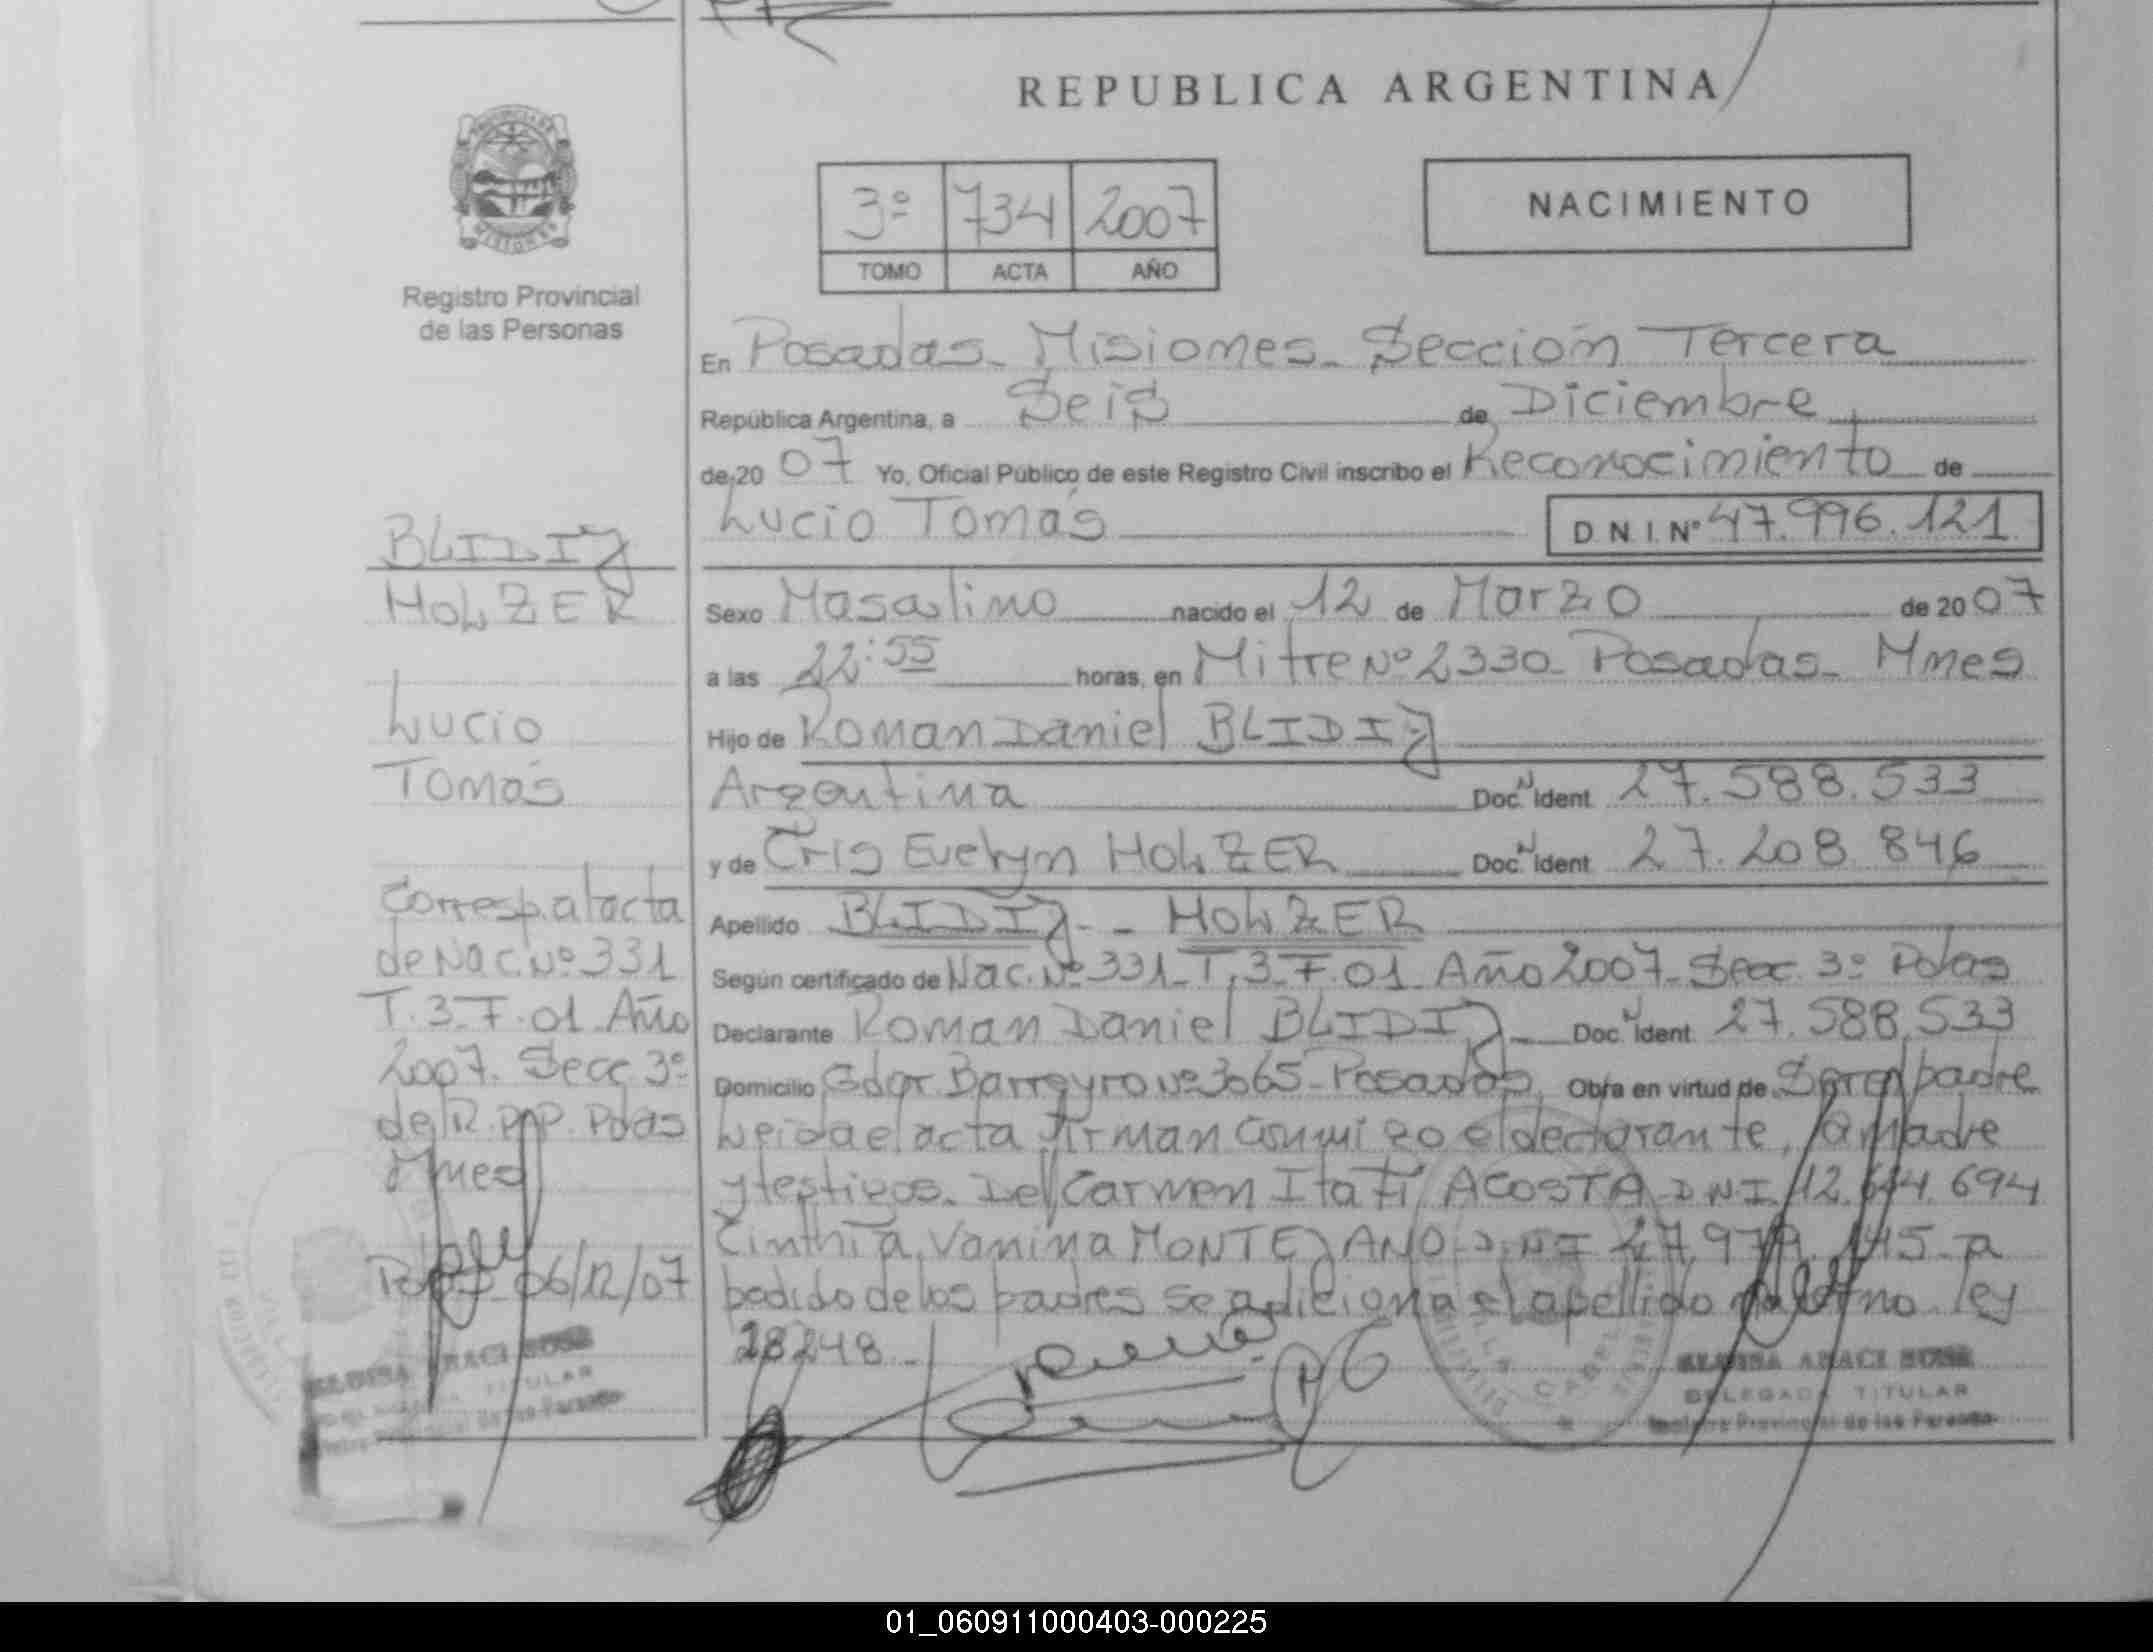 REPUBLICA ARGENTINA
PROVINCIA DE
MISIONES
Registro Provincial
de las Personas
3º 734 2007
TOMO ACTA AÑO
NACIMIENTO
En Posadas - Misiones - Sección Tercera
República Argentina, a Seis de Diciembre
de 20 07 Yo, Oficial Público de este Registro Civil inscribo el Reconocimiento de
Lucio Tomás D N I. Nº 47.996.121
Sexo Masculino nacido el 12 de Marzo de 20 07
a las 22:55 horas, en Mitre Nº 2330 - Posadas - Mnes
Hijo de Roman Daniel BLIDIJ
Argentina Doc. Ident 27.588.533
y de Cris Evelyn HOLZER Doc. Ident 27.208.846
Apellido BLIDIJ - HOLZER
Según certificado de Nac. Nº 331 - T. 3 - F. 01 - Año 2007 - Secc 3º Pdas
Declarante Roman Daniel BLIDIJ - Doc. Ident. 27.588.533
Domicilio Gdor. Barreyro Nº 3065 - Posadas, Obra en virtud de Ser el padre
Leida el acta firman conmigo el declarante, la madre
y testigos. Del Carmen Itatí ACOSTA DNI 12. 694
Cinthia Vanina MONTEJANO DNI 27.97 145 - A
pedido de los padres se adiciona el apellido materno ley
18248 -
BLIDIJ
HOLZER
Lucio
Tomás
Corresp. al acta
de Nac. Nº 331
T. 3 - F. 01 Año
2007. Secc 3º
del R.P.P. Pdas
Mnes
06/12/07
ARACI
TITULAR
ARACI
DELEGADA TITULAR
Registro Provincial de las Personas
01_060911000403-000225